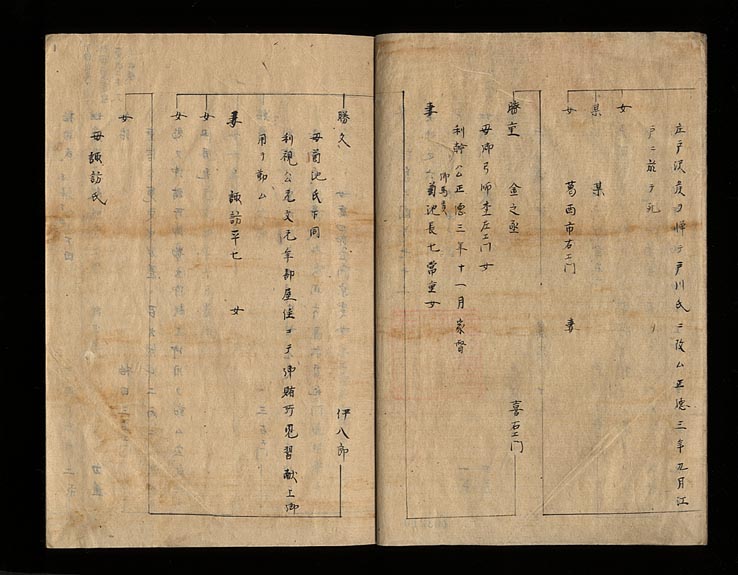 庄戸沢炭ヲ憚リ戸川氏ニ改ム正徳三年九月江
戸ニ於テ死
女
某 某
女 葛西市右エ門 妻
勝重 金之丞 喜右エ門
母御弓師李左エ門女
利幹公正徳三年十一月家督
妻 御馬責 菊池長七常重女
勝久 伊八郎
母菊池氏
利視公元文元年部屋住ヨリ御賄所見習献上御
用リ勤ム
妻 諏訪平七 女
女
女
女
母諏訪氏